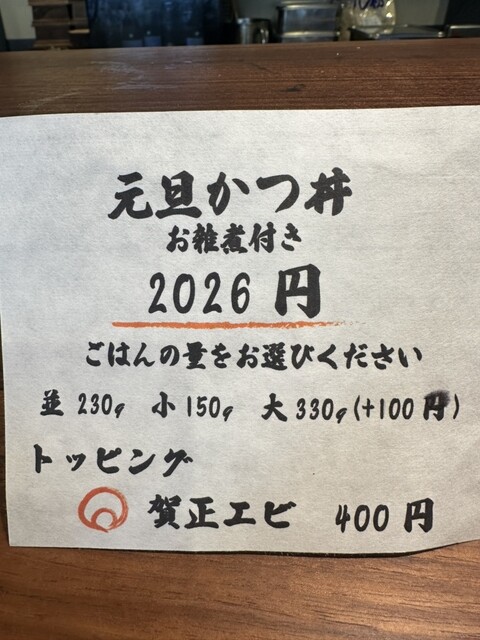 元旦かつ丼
お雑煮付き
2026 円
ごはんの量をお選びください
並 230g 小 150g 大 330g (+100 円)
トッピング
賀正エビ 400 円